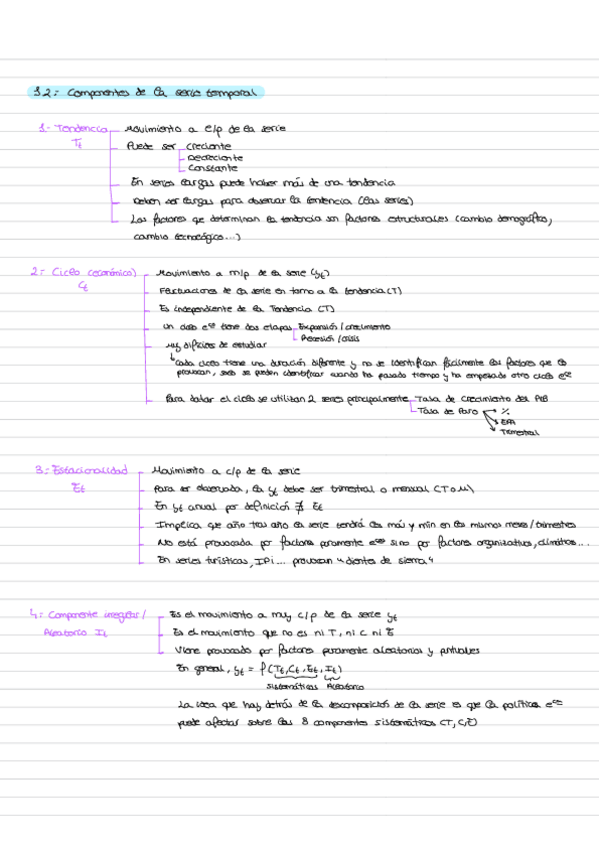 1.2: Componentes de la serie temporal
1- Tendencia Movimiento a l/p de la serie
Tt Puede ser creciente
Decreciente
Constante
En series largas puede haber más de una tendencia
Deben ser largas para observar la tendencia (las series)
Los factores que determinan la tendencia son factores estructurales (cambio demográfico,
cambio tecnológico...)
2: Ciclo (económico) Movimiento a m/p de la serie (yt)
Ct Fluctuaciones de la serie en torno a la tendencia (T)
Es independiente de la Tendencia (T)
Un ciclo eco tiene dos etapas Expansión/crecimiento
Recesión/crisis
Muy difíciles de estudiar
Cada ciclo tiene una duración diferente y no se identifican fácilmente los factores que lo
provocan, solo se pueden identificar cuando ha pasado tiempo y ha empezado otro ciclo eco
Para datar el ciclo se utilizan 2 series principalmente Tasa de crecimiento del PIB
Tasa de Paro %
EPA
Trimestral
3: Estacionalidad Movimiento a c/p de la serie
Et Para ser observada, la yt debe ser trimestral o mensual (T o M)
En yt anual por definición ∄ Et
Implica que año tras año la serie tendrá los más y mín en los mismos meses/trimestres
No está provocada por factores puramente ecos sino por factores organizativos, climáticos...
En series turísticas, IPi... provocan "dientes de sierra"
4: Componente irregular/ Es el movimiento a muy c/p de la serie yt
Aleatorio It Es el movimiento que no es ni T, ni C ni E
Viene provocado por factores puramente aleatorios y puntuales
En general, yt = f(Tt, Ct, Et, It)
Sistemáticos Aleatorio
La idea que hay detrás de la descomposición de la serie es que la política eca
puede afectar sobre las 3 componentes sistemáticos (T, C, E)